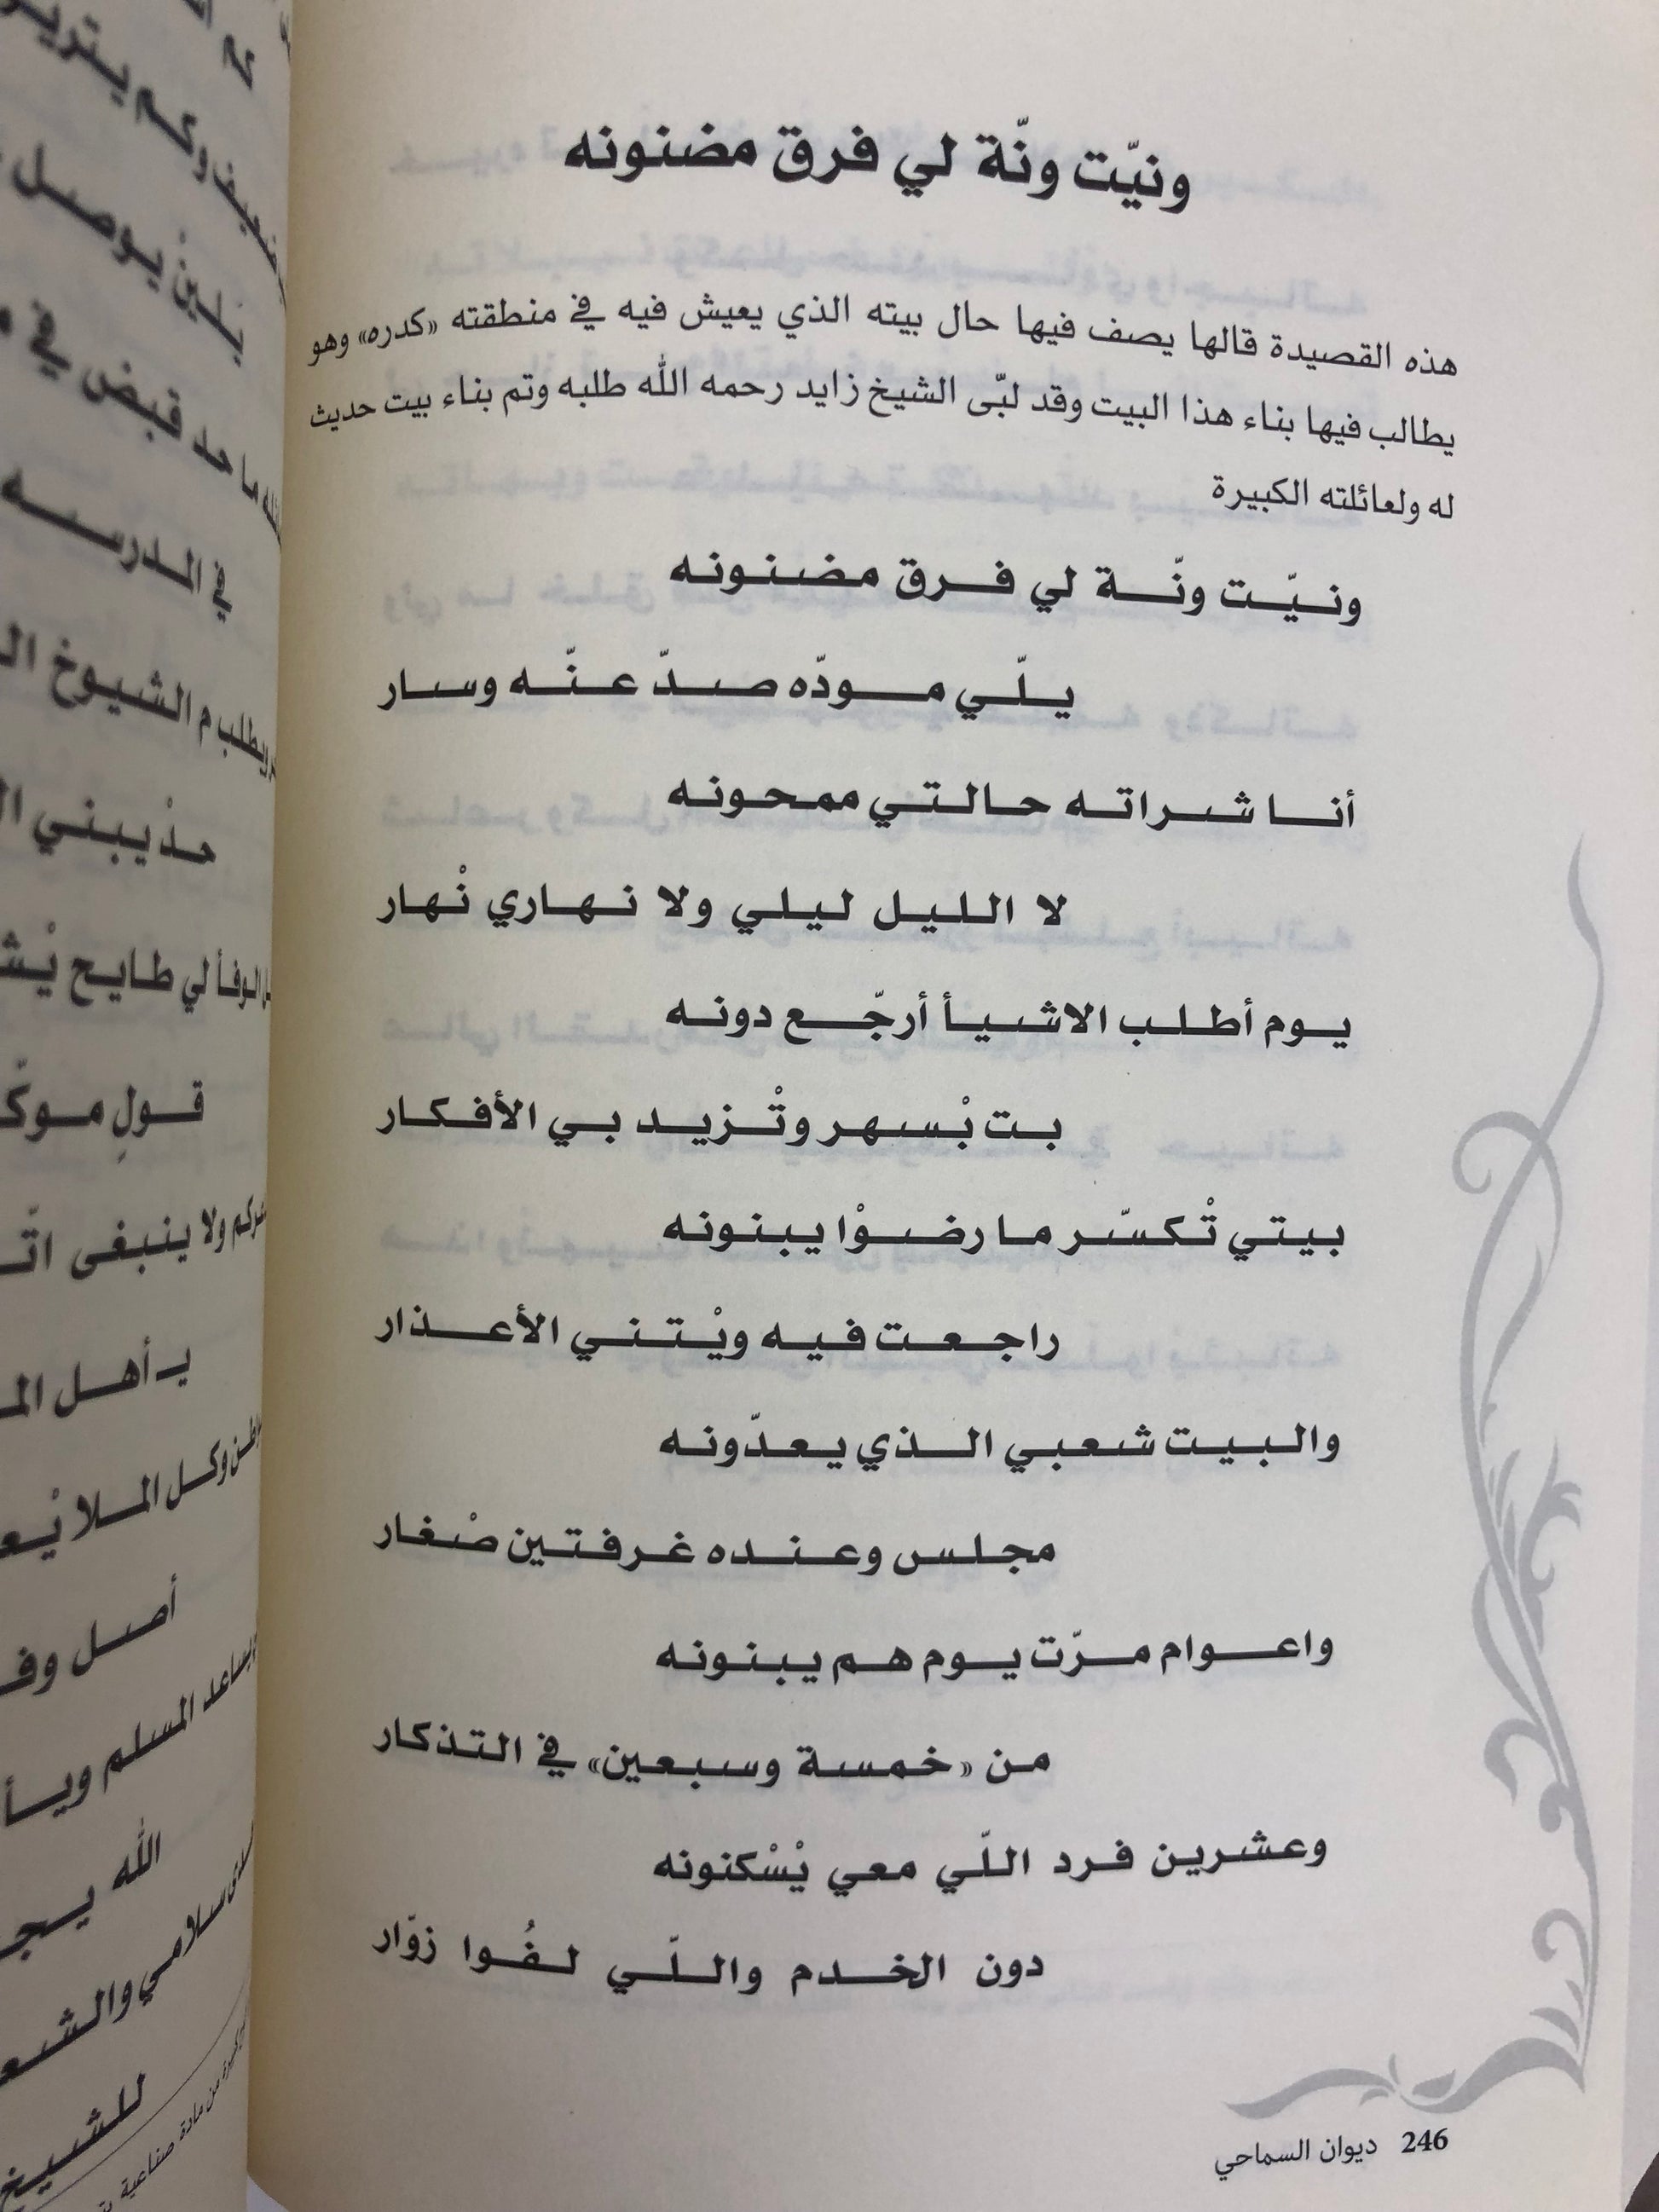 ونيّت ونّة لي فرق مضنونه
هذه القصيدة قالها يصف فيها حال بيته الذي يعيش فيه في منطقته «كدره» وهو
يطالب فيها بناء هذا البيت وقد لبّى الشيخ زايد رحمه الله طلبه وتم بناء بيت حديث
له ولعائلته الكبيرة
ونيّت ونّة لي فرق مضنونه
يلّي مودّه صدّ عنّه وسار
أنا شراته حالتي ممحونه
لا الليل ليلي ولا نهاري نْهار
يوم أطلب الاشيأ أرجّع دونه
بت بْسهر وتْزيد بي الأفكار
بيتي تْكسّر ما رضوْا يبنونه
راجعت فيه ويْتني الأعذار
والبيت شعبي الذي يعدّونه
مجلس وعنده غرفتين صْغار
واعوام مرّت يوم هم يبنونه
من «خمسة وسبعين» في التذكار
وعشرين فرد اللّي معي يْسْكنونه
دون الخدم واللّي لفُوا زوّار
246 ديوان السماحي
يوصل
قبض في
في المدرسه
ويطلب م الشيوخ
حذيبني
لي طايح
قولٍ
ولا ينبغى
أهل
وكل الملا
أصل
يساعد المسلم
الله
سلامي
للشيخ
من مادة صناعية